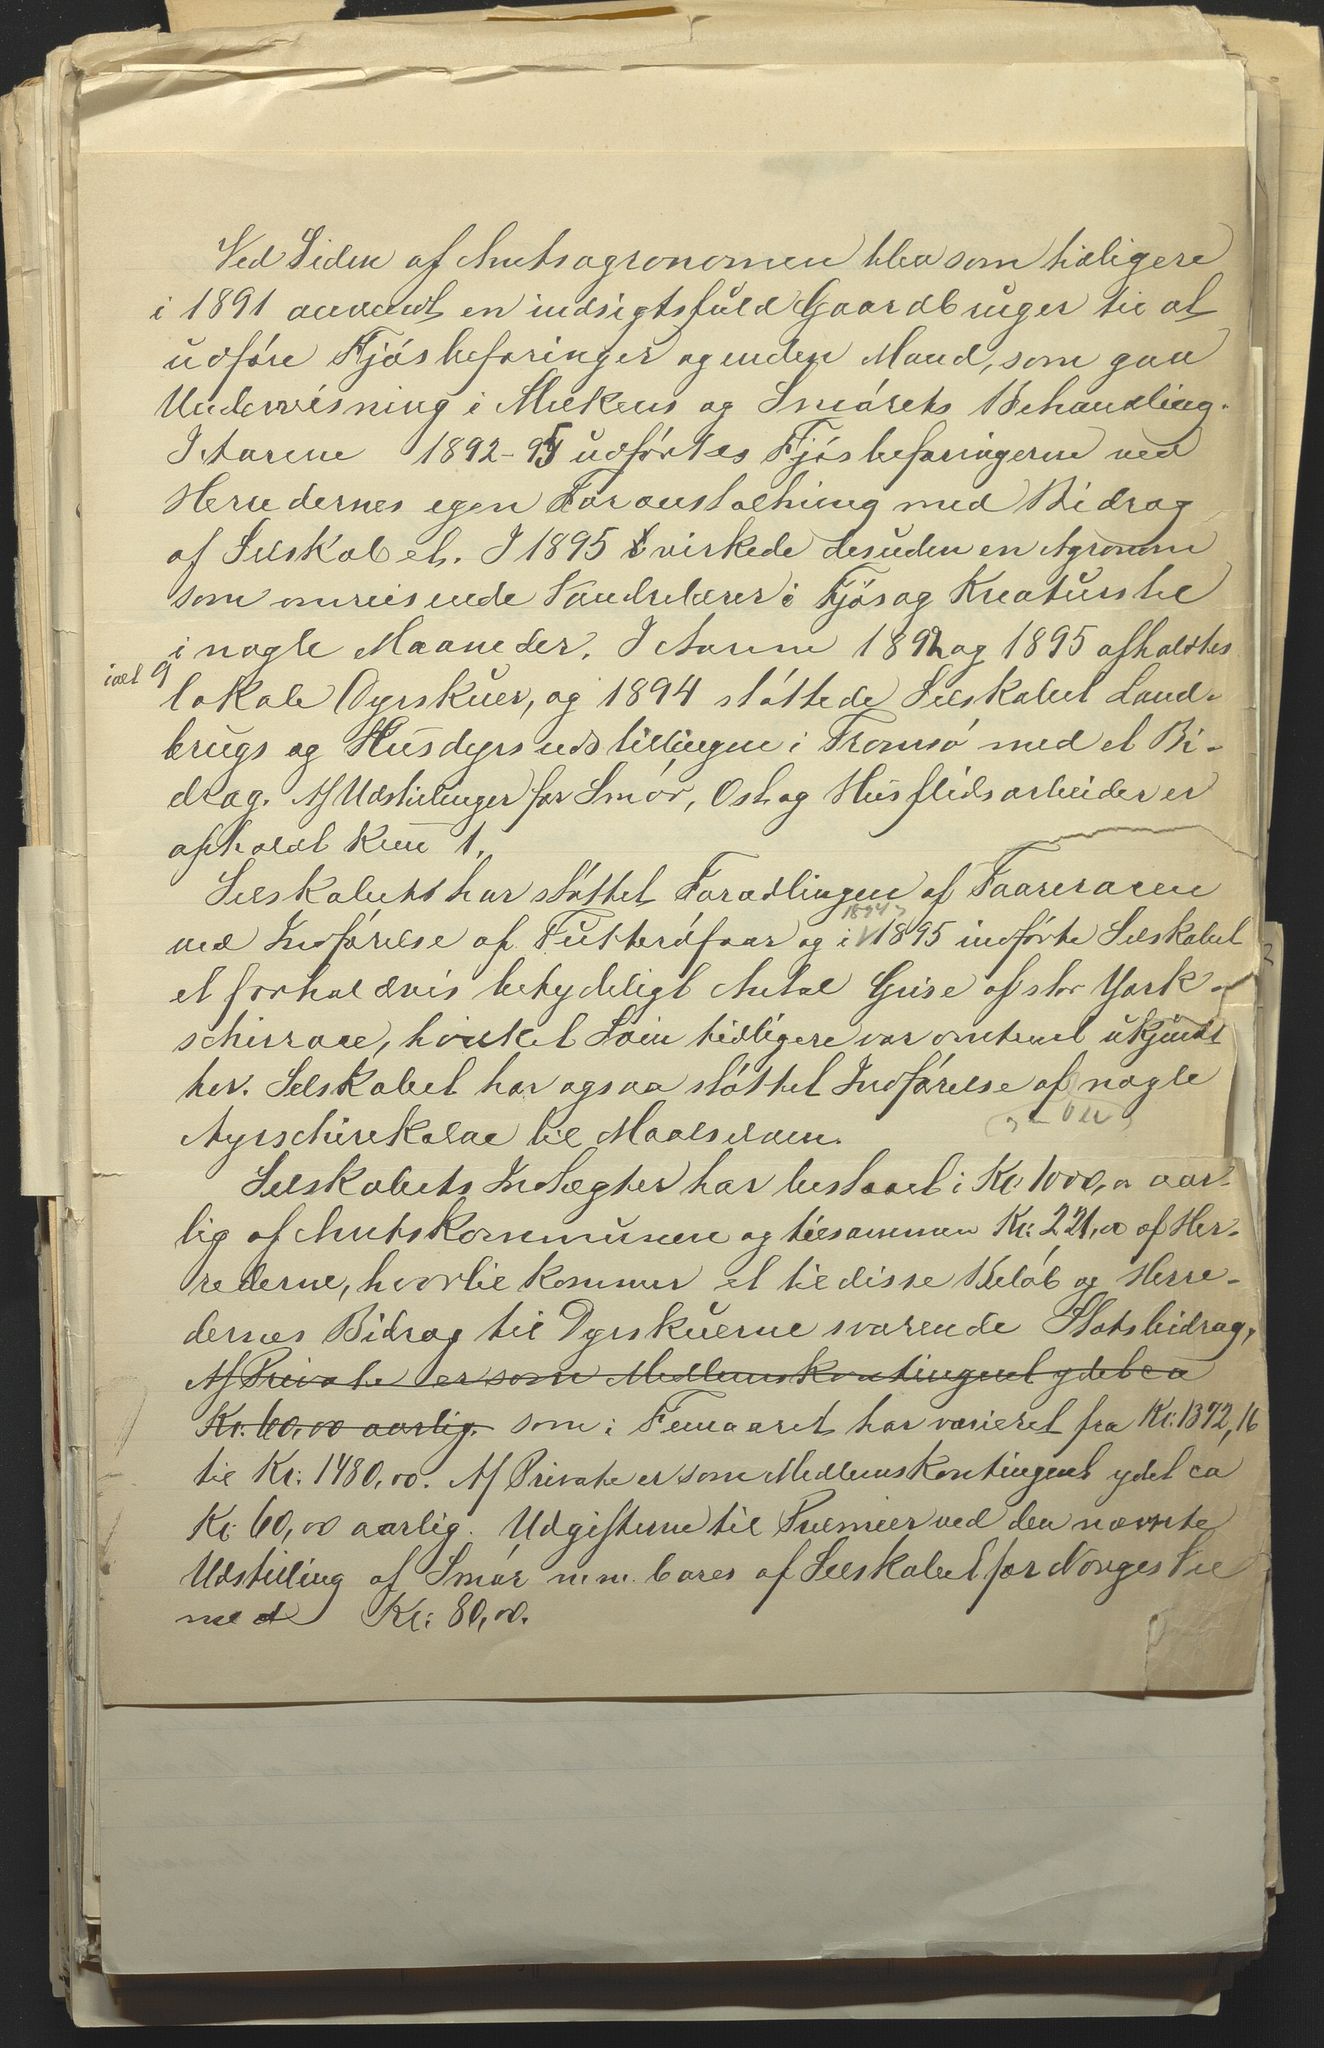 Ved Siden af Amtsagronomen blev som tidligere
i 1891 anvendt en indsigtsfuld Gaardbruger til at
udføre Fjøsbefaringer og enden Mand, som gav
Undervisning i Melkens og Smørets Behandling.
I Aarene 1892-95 udførtes Fjøsbefaringerne ved
Herredernes egen Foranstaltning med Bidrag
af Selskabet. I 1895 virkede desuden en Agronom
som omreisende Vandrelærer i Fjøs og Kreaturstel
i nogle Maaneder. I Aarene 1892 og 1895 afholdtes
ialt 9
lokale Dyrskuer, og 1894 støttede Selskabet Land-
brugs og Husdyrsudstillingen i Tromsø med et Bi-
drag. Af Udstillinger for Smør, Ost og Husflidsarbeider er
afholdt kun 1.
Selskabet har støttet Forædlingen af Faareracen
1894
ved Indførelse af Tutterøfaar og i 1895 indførte Selskabet
et forholdvis betydeligt Antal Grise af stor York-
schirrace, hvilket Svin tidligere var omtrent ukjendt
her. Selskabet har ogsaa støttet Indførelse af nogle
Ayrschirekalve til Maalselven.
Selskabets Indtægter har bestaaet i Kr. 1000,00 aar-
lig af Amtskommunen og tilsammen Kr: 221,00 af Her-
rederne, hvortil kommer et til disse Beløb og Herre-
dernes Bidrag til Dyrskuerne svarende Statsbidrag,
Af Private er som Medlemskontingent ydet ca
Kr. 60,00 aarlig. som i Femaaret har varieret fra Kr: 1372,16
til Kr: 1480,00. Af Private er som Medlemskontingent ydet ca
Kr. 60,00 aarlig. Udgifterne til Præmier ved den nævnte
Udstilling af Smør m.m. bares af Selskabet for Norges Vel
med Kr: 80,00.